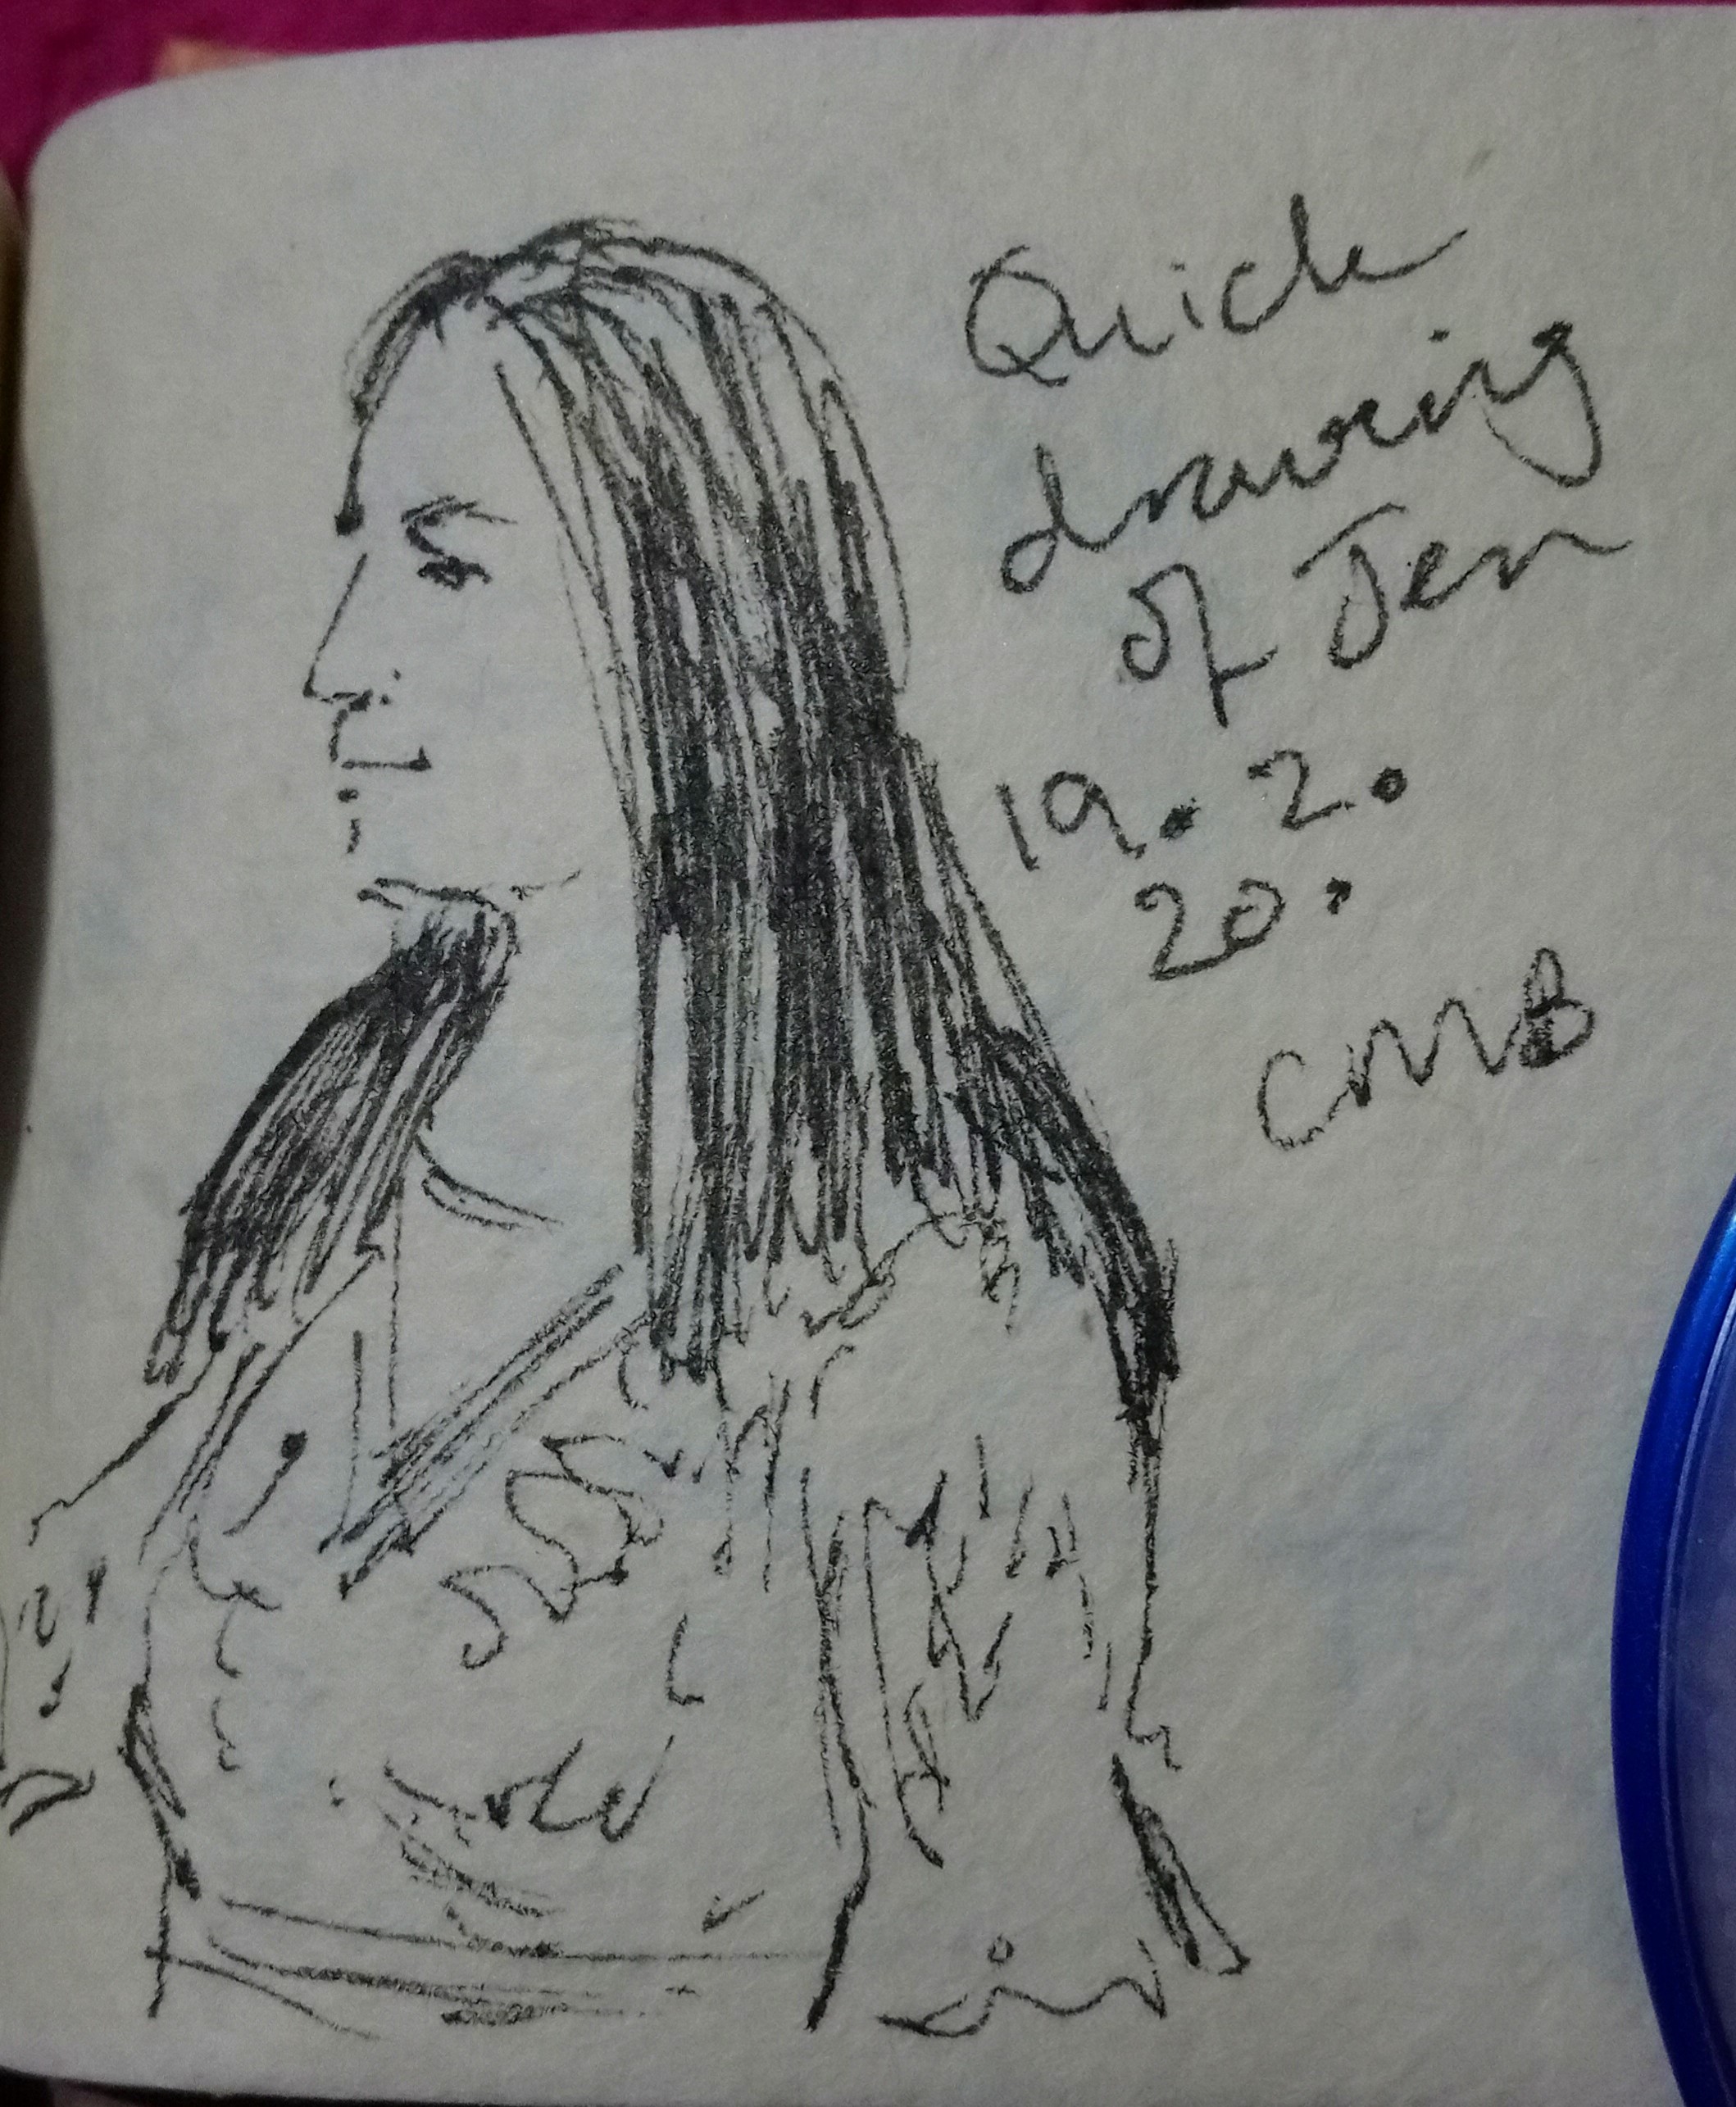 Quick
drawing
of Jen
19.2.
20.
CMB